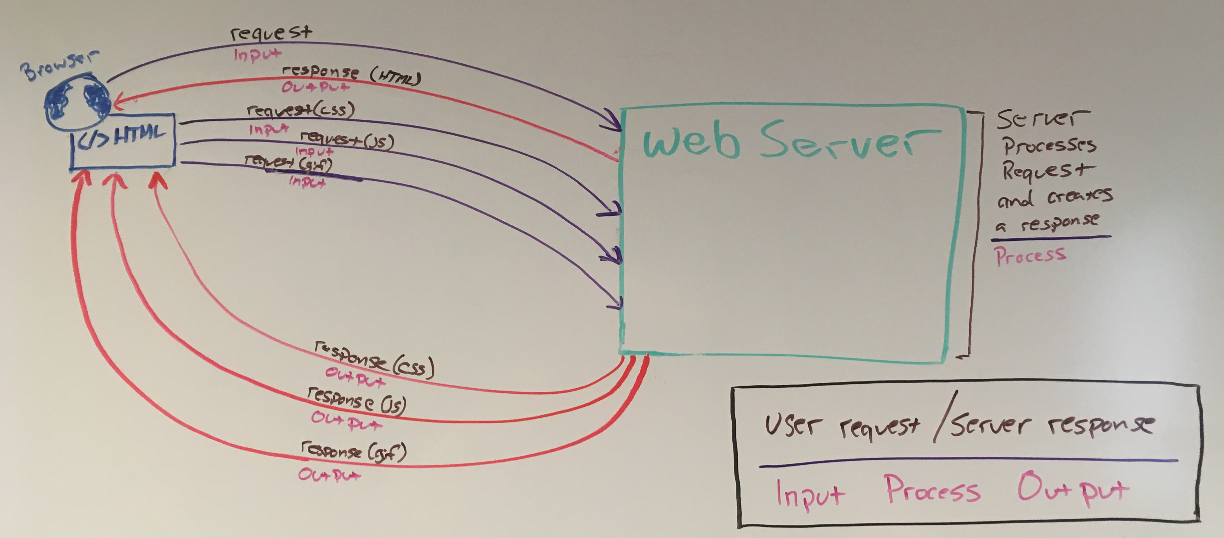 Browser
</> HTML
request
Input
response (HTML)
Output
request (css)
Input
request (Js)
Input
request (gif)
Input
Web Server
Server
Processes
Request
and creates
a response
Process
response (css)
Output
response (Js)
Output
response (gif)
Output
User request / Server response
Input Process Output